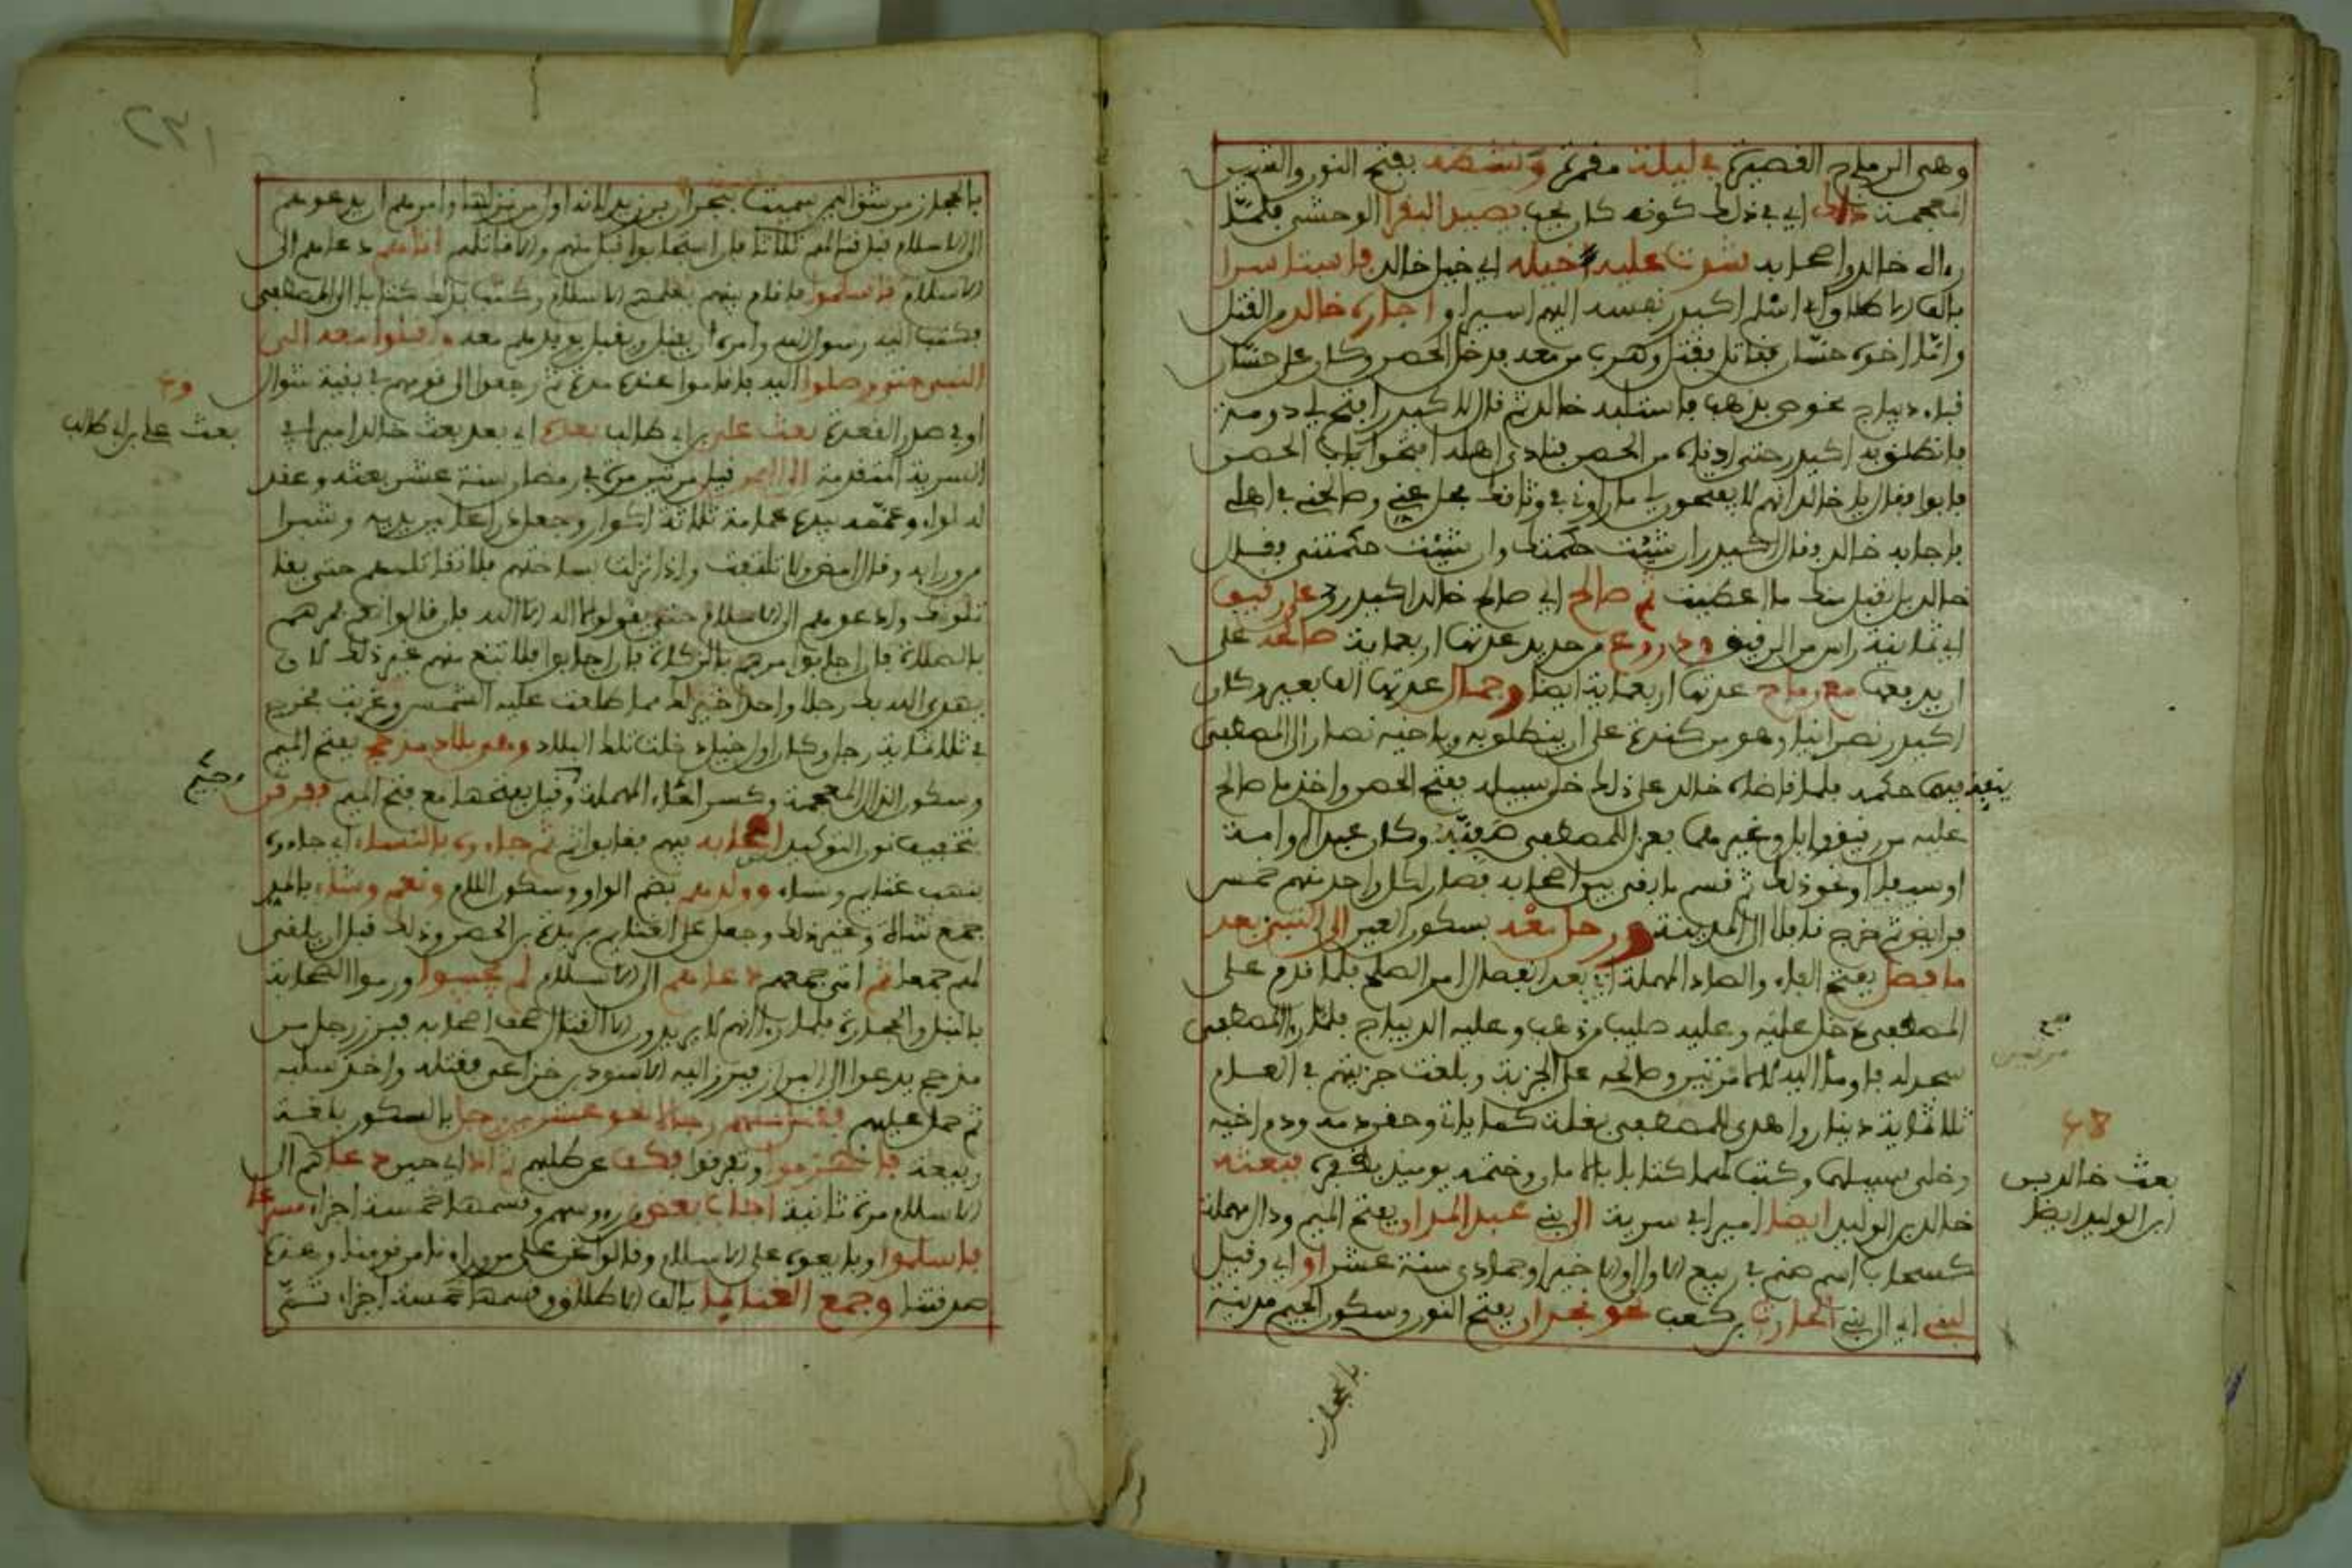 وهي الرماح القصيرة في ليلة مقمرة ونشطه بفتح النون والشين
المعجمة ذلك اي في ذلك كونه كان يحب بصيد البقر الوحشي فلما
راى خالد واصحابه شدت عليه خيله اي خيل خالد فاستاسرا
بالف الاطلاق اي اسلم اكيدر نفسه اليهم اسيرا واجاره خالد من القتل
واما اخوه حسان فقاتل فقتل وهرب من معه فدخل الحصن وكان على حسان
قباء ديباج مخوص بذهب فاستلبه خالد ثم قال لاكيدر افتح لي دومة
فانطلق به اكيدر حتى ادناه من الحصن فنادى اهله افتحوا باب الحصن
فابوا فقال يا خالد انهم لا يفتحون لي ما راوني في وثاقك فحل عني وصالحني في اهلي
فاجابه خالد فقال اكيدر ان شئت حكمتك وان شئت حكمتني فقال
خالد بل نقبل منك ما اعطيت ثم صالح اي صالح خالد اكيدر على رقيق
اي ثمانمية راس من الرقيق ودروع من حديد عدتها اربعماية صالحه على
ان يدفعها مع رماح عدتها اربعماية ايضا وجمال عدتها الفا بعير وكان
اكيدر نصرانيا وهو من كندة على ان ينطلق به وباخيه نصار الى المصطفى
ينفذ فيهما حكمه فلما قاضاه خالد على ذلك خلى سبيله ففتح الحصن واخذ ما صالح
عليه من رقيق وابل وغير هما فعزل للمصطفى صفيه وكان عبدا او امة
او سيفا او نحو ذلك ثم قسم ما بقي بين اصحابه فصار لكل واحد منهم خمس
فرايض ثم خرج قافلا الى المدينة ورحل معه بسكون العين الى النبي بعد
ما فصل بفتح الفاء والصاد المهملة اي بعد انفصال امر الصلح فلما قدم على
المصطفى دخل عليه وعليه صليب من ذهب وعليه الديباج فلما را المصطفى
سجد له فاوما اليه لا لا مرتين وصالحه على الجزية وبلغت جزيتهم في العام
ثلاثماية دينار واهدى للمصطفى بغلة كما ياتي وحقن دمه ودم اخيه
وخلى سبيلهما وكتب لهما كتابا بالامان وختمه يوميذ بظفره فبعثه
خالد بن الوليد ايضا اميرا في سرية الى بني عبد المدان بفتح الميم ودال مهملة
كسحاب اسم صنم في ربيع الاول او الاخير او جمادى سنة عشر او اي وقيل
لبني اي الى بني الحارث بن كعب نحو نجران بفتح النون وسكون الجيم مدينة
بالحجاز
صح
مرتين
٤٨
بعث خالد بن
الوليد ايضا
٢٣١
بالحجاز من شق اليمن سميت بنجران بن زيد لانه اول من نزلها وامره ان يدعوهم
الى الاسلام قبل قتالهم ثلاثا فان استجابوا قبل منهم والا قاتلهم اتاهم دعاهم الى
الاسلام فاسلموا فاقام فيهم يعلمهم الاسلام وكتب بذلك كتابا الى المصطفى
فكتب اليه رسول الله وامره ان يقبل ويقبل بوفدهم معه واقبلوا معه الى
النبي حتى وصلوا اليه فاقاموا عنده مدة ثم رجعوا الى قومهم في بقية شوال
او في صدر القعدة بعث علي بن ابي طالب بعده اي بعد بعث خالد اميرا في
السرية المتقدمة الى اليمن قيل مرتين مرة في رمضان سنة عشر بعثه وعقد
له لواء وعممه بيده عمامة ثلاثة اكوار وجعل ذراعا بين يديه وشبرا
من ورايه وقال امض ولا تلتفت واذا نزلت بساحتهم فلا تقاتلهم حتى يقا
تلوك وادعوهم الى الاسلام حتى يقولوا لا اله الا الله فان قالوا نعم فمرهم
بالصلاة فان اجابوا مرهم بالزكاة فان اجابوا فلا تبغ منهم غير ذلك لان
يهدي الله بك رجلا واحدا خير لك مما طلعت عليه الشمس وغربت فخرج
في ثلاثماية رجل وكان اول خيل دخلت تلك البلاد وهي بلاد مذحج بفتح الميم
وسكون الذال المعجمة وكسر الحاء المهملة وقيل بفتحها مع فتح الميم ففرقن
بتخفيف نون التوكيد اصحابه فيهم فغابوا ثم جاءوه بالنساء اي جاءوه
بنهب غنايم ونساء وولدهم بضم الواو وسكون اللام ونعم وشاء بالمد
جمع شاة وغير ذلك وجعل على الغنايم بريدة بن الحصيب وذلك قبل ان يلقى
لهم جمعا ثم اتى جمعهم دعاهم الى الاسلام لم يجيبوا ورموا الصحابة
بالنبل والحجارة فلما راى انهم لا يريدون الا القتال صف اصحابه فبرز رجل من
مذحج يدعوا الى البراز فبرز اليه الاسود بن خزاعي فقتله واخذ سلبه
ثم حمل عليهم فقتل منهم رجالا نحو عشرين رجل بالسكون بلغة
ربيعة فانهزموا وتفرقوا فكف عن طلبهم اذ اي حين دعاهم الى
الاسلام مرة ثانية اجاب بعض من رءوسهم وقسمها خمسة اجزاء مسرعا
فاسلموا وبايعوه على الاسلام وقالوا نحن على من وراءنا من قومنا وهذه
صدقتنا وجمع الغنايما بالف الاطلاق وقسمها خمسة اجزاء ثم
بعث علي بن ابي طالب